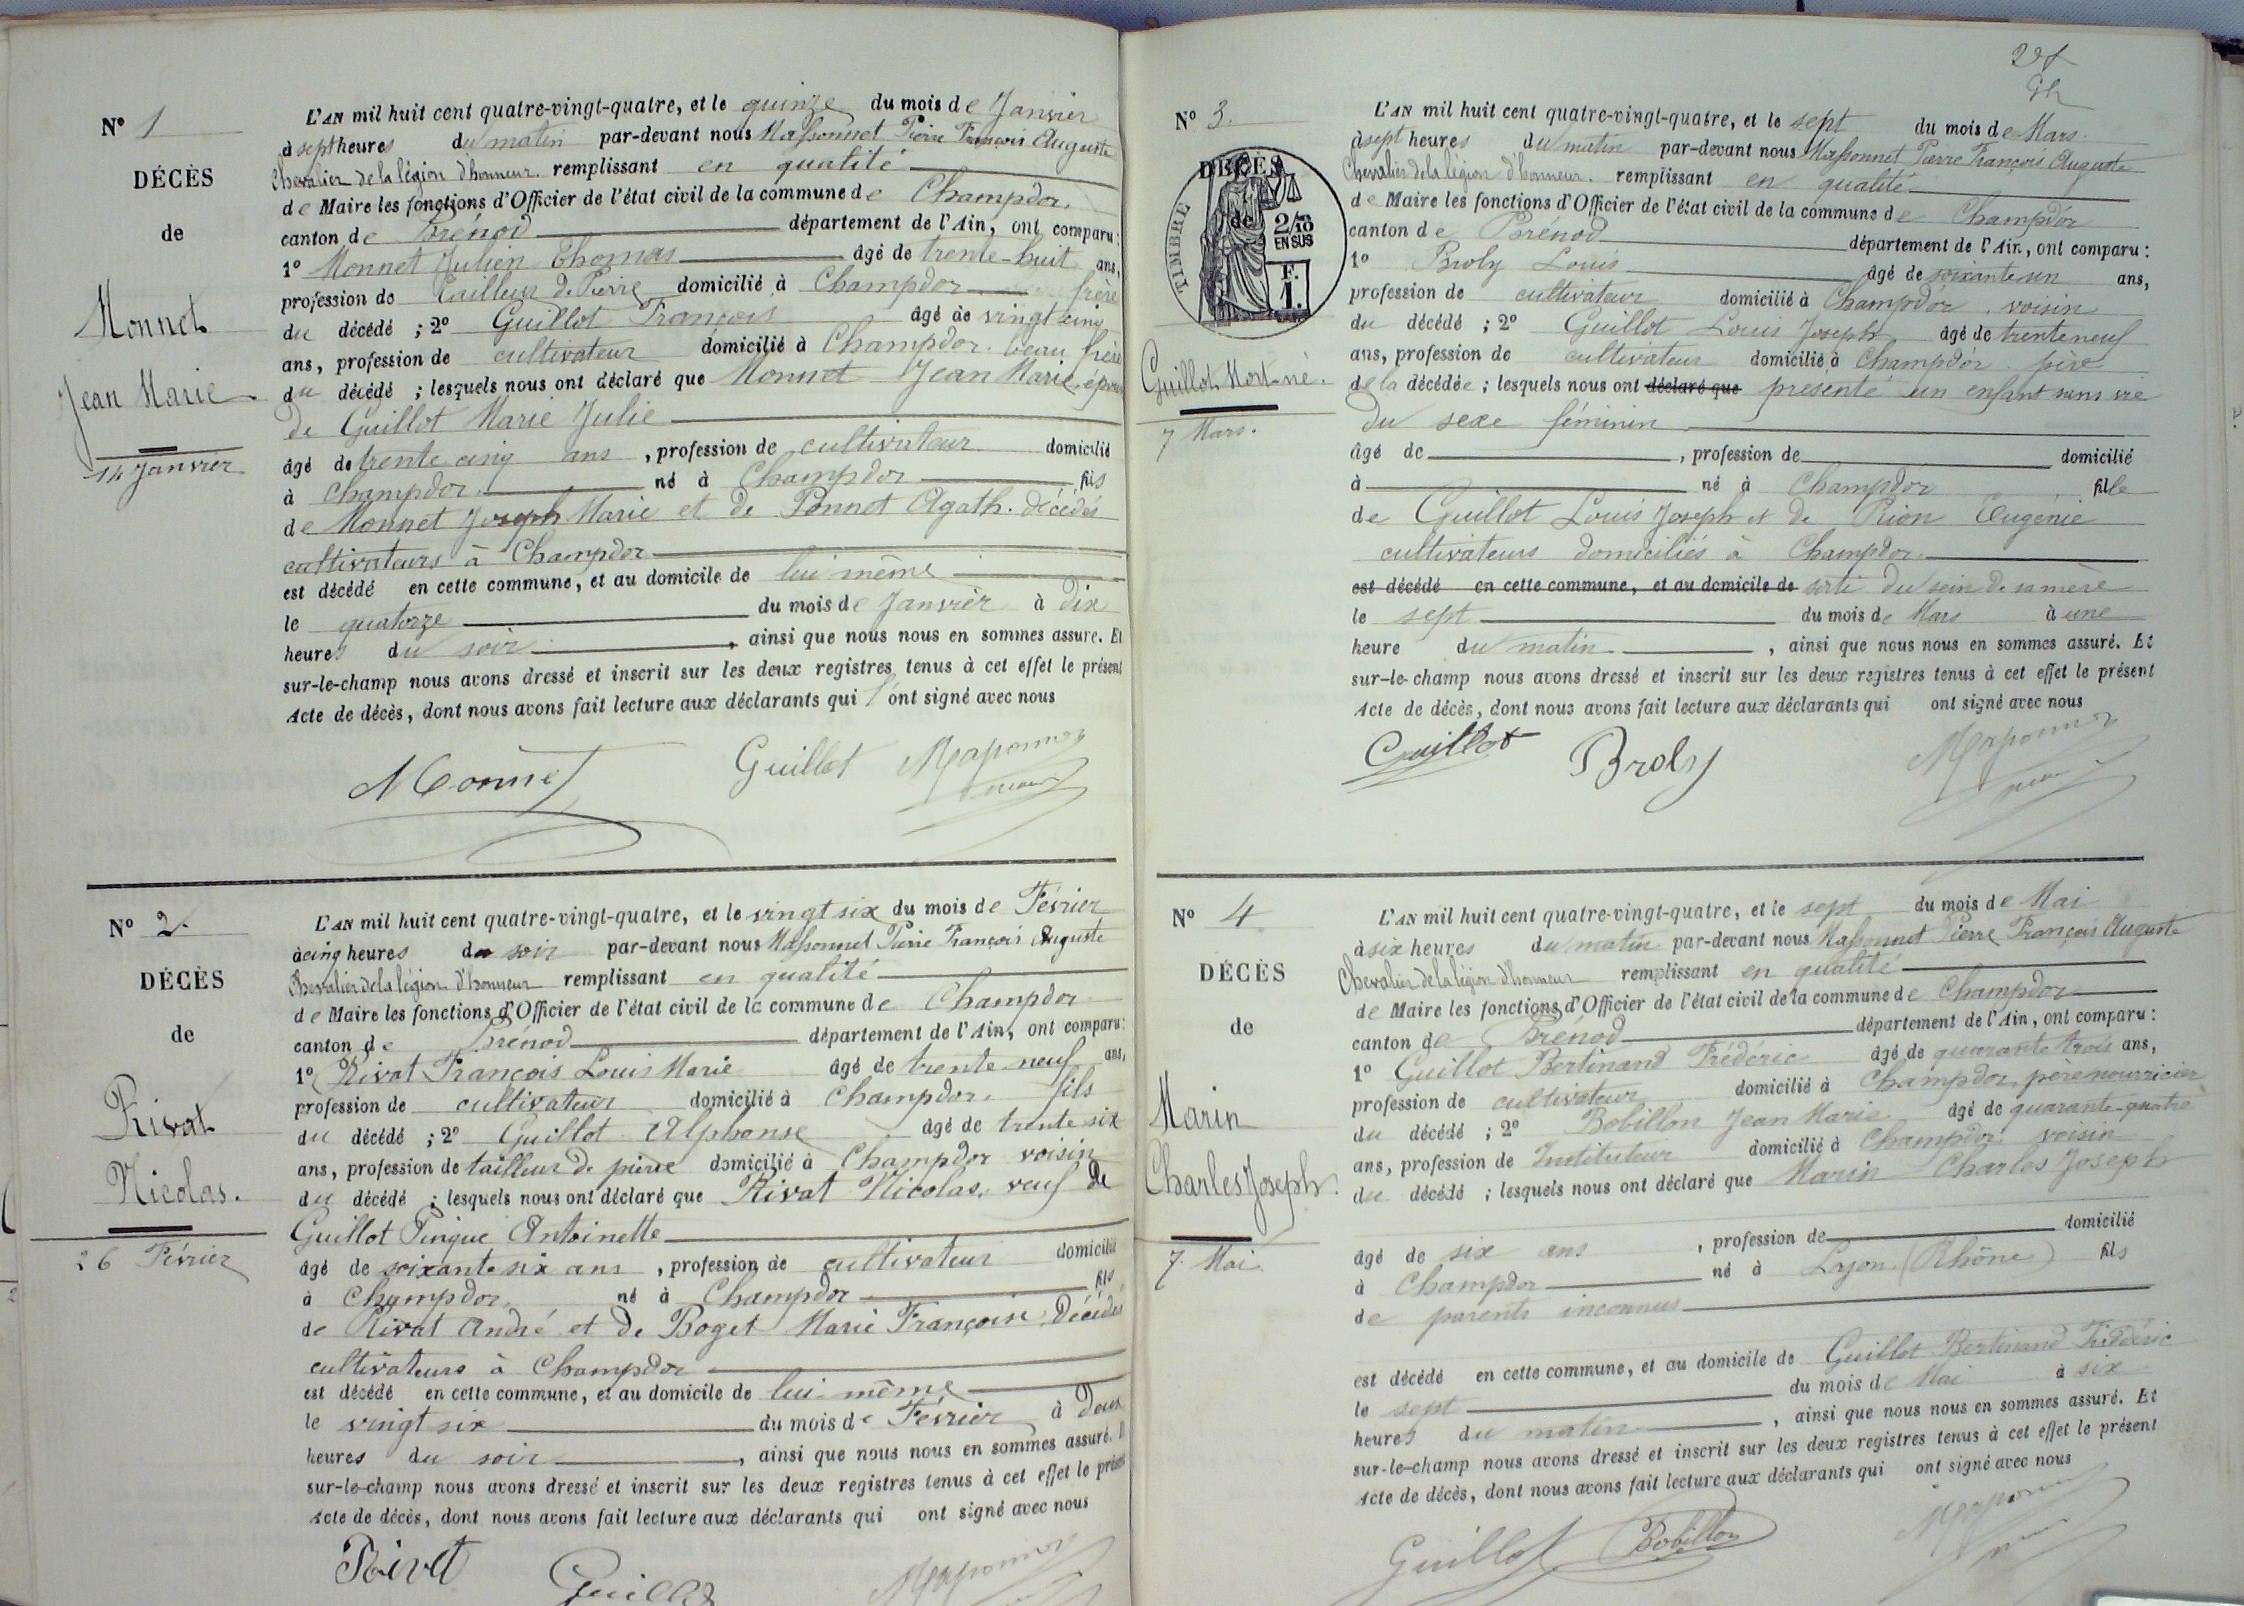 Nº 1
DÉCÈS
de
Monnet
Jean Marie
14 Janvier
L'AN mil huit cent quatre-vingt-quatre, et le quinze du mois de Janvier
à sept heures du matin par-devant nous Massonnet Pierre François Auguste
Chevalier de la légion d'honneur remplissant en qualité
de Maire les fonctions d'Officier de l'état civil de la commune de Champdor.
canton de Brénod département de l'Ain, ont comparu :
1º Monnet Julien Thomas âgé de trente-huit ans,
profession de Tailleur de Pierre domicilié à Champdor frère
du décédé ; 2º Guillot François âgé de vingt cinq
ans, profession de cultivateur domicilié à Champdor. beau frère
du décédé ; lesquels nous ont déclaré que Monnet Jean Marie, époux
de Guillot Marie Julie
âgé de trente cinq ans, profession de cultivateur domicilié
à Champdor né à Champdor fils
de Monnet Joseph Marie et de Ponnet Agath. décédés
cultivateurs à Champdor
est décédé en cette commune, et au domicile de lui même
le quatorze du mois de Janvier à dix
heures du soir, ainsi que nous nous en sommes assuré. Et
sur-le-champ nous avons dressé et inscrit sur les deux registres tenus à cet effet le présent
Acte de décès, dont nous avons fait lecture aux déclarants qui l'ont signé avec nous
Monnet Guillot Massonnet
maire
Nº 2.
DÉCÈS
de
Rivat
Nicolas.
26 Février
L'AN mil huit cent quatre-vingt-quatre, et le vingt six du mois de Février
à cinq heures du soir par-devant nous Massonnet Pierre François Auguste
Chevalier de la légion d'honneur remplissant en qualité
de Maire les fonctions d'Officier de l'état civil de la commune de Champdor
canton de Brénod département de l'Ain, ont comparu :
1º Rivat François Louis Marie âgé de trente neuf ans,
profession de cultivateur domicilié à Champdor. fils
du décédé ; 2º Guillot Alphonse âgé de trente six
ans, profession de tailleur de pierre domicilié à Champdor voisin
du décédé ; lesquels nous ont déclaré que Rivat Nicolas, veuf de
Guillot Pingue Antoinette
âgé de soixante six ans, profession de cultivateur domicilié
à Champdor né à Champdor fils
de Rivat André et de Boget Marie Françoise Décédés
cultivateurs à Champdor
est décédé en cette commune, et au domicile de lui-même
le vingt six du mois de Février à Deux
heures du soir, ainsi que nous nous en sommes assuré.
sur-le-champ nous avons dressé et inscrit sur les deux registres tenus à cet effet le présent
Acte de décès, dont nous avons fait lecture aux déclarants qui ont signé avec nous
Rivat Guillot Massonnet
Nº 3.
DÉCÈS
de
TIMBRE
2/10
EN SUS
F.
1.
Guillot Mort-né.
7 Mars.
L'AN mil huit cent quatre-vingt-quatre, et le sept du mois de Mars
à sept heures du matin par-devant nous Massonnet Pierre François Auguste
Chevalier de la légion d'honneur. remplissant en qualité
de Maire les fonctions d'Officier de l'état civil de la commune de Champdor
canton de Brénod département de l'Ain, ont comparu :
1º Broly Louis âgé de soixante un ans,
profession de cultivateur domicilié à Champdor. voisin
du décédé ; 2º Guillot Louis Joseph âgé de trente neuf
ans, profession de cultivateur domicilié à Champdor. père
de la décédée ; lesquels nous ont déclaré que présenté un enfant sans vie
du sexe féminin
âgé de , profession de domicilié
à né à Champdor fille
de Guillot Louis Joseph et de Rion Eugénie
cultivateurs domiciliés à Champdor.
est décédé en cette commune, et au domicile de sorti du sein de sa mère
le sept du mois de Mars à une
heure du matin, ainsi que nous nous en sommes assuré. Et
sur-le-champ nous avons dressé et inscrit sur les deux registres tenus à cet effet le présent
Acte de décès, dont nous avons fait lecture aux déclarants qui ont signé avec nous
Guillot Broly Massonnet
maire
Nº 4
DÉCÈS
de
Marin
Charles Joseph.
7 Mai.
L'AN mil huit cent quatre-vingt-quatre, et le sept du mois de Mai
à six heures du matin par-devant nous Massonnet Pierre François Auguste
Chevalier de la légion d'honneur remplissant en qualité
de Maire les fonctions d'Officier de l'état civil de la commune de Champdor
canton de Brénod département de l'Ain, ont comparu :
1º Guillot Bertinand Frédéric âgé de quarante trois ans,
profession de cultivateur domicilié à Champdor, père nourricier
du décédé ; 2º Bobillon Jean Marie âgé de quarante-quatre
ans, profession de Instituteur domicilié à Champdor voisin
du décédé ; lesquels nous ont déclaré que Marin Charles Joseph
âgé de six ans , profession de domicilié
à Champdor né à Lyon (Rhône) fils
de parents inconnus
est décédé en cette commune, et au domicile de Guillot Bertinand Frédéric
le sept du mois de Mai à six
heures du matin, ainsi que nous nous en sommes assuré. Et
sur-le-champ nous avons dressé et inscrit sur les deux registres tenus à cet effet le présent
Acte de décès, dont nous avons fait lecture aux déclarants qui ont signé avec nous
Guillot Bobillon Massonnet